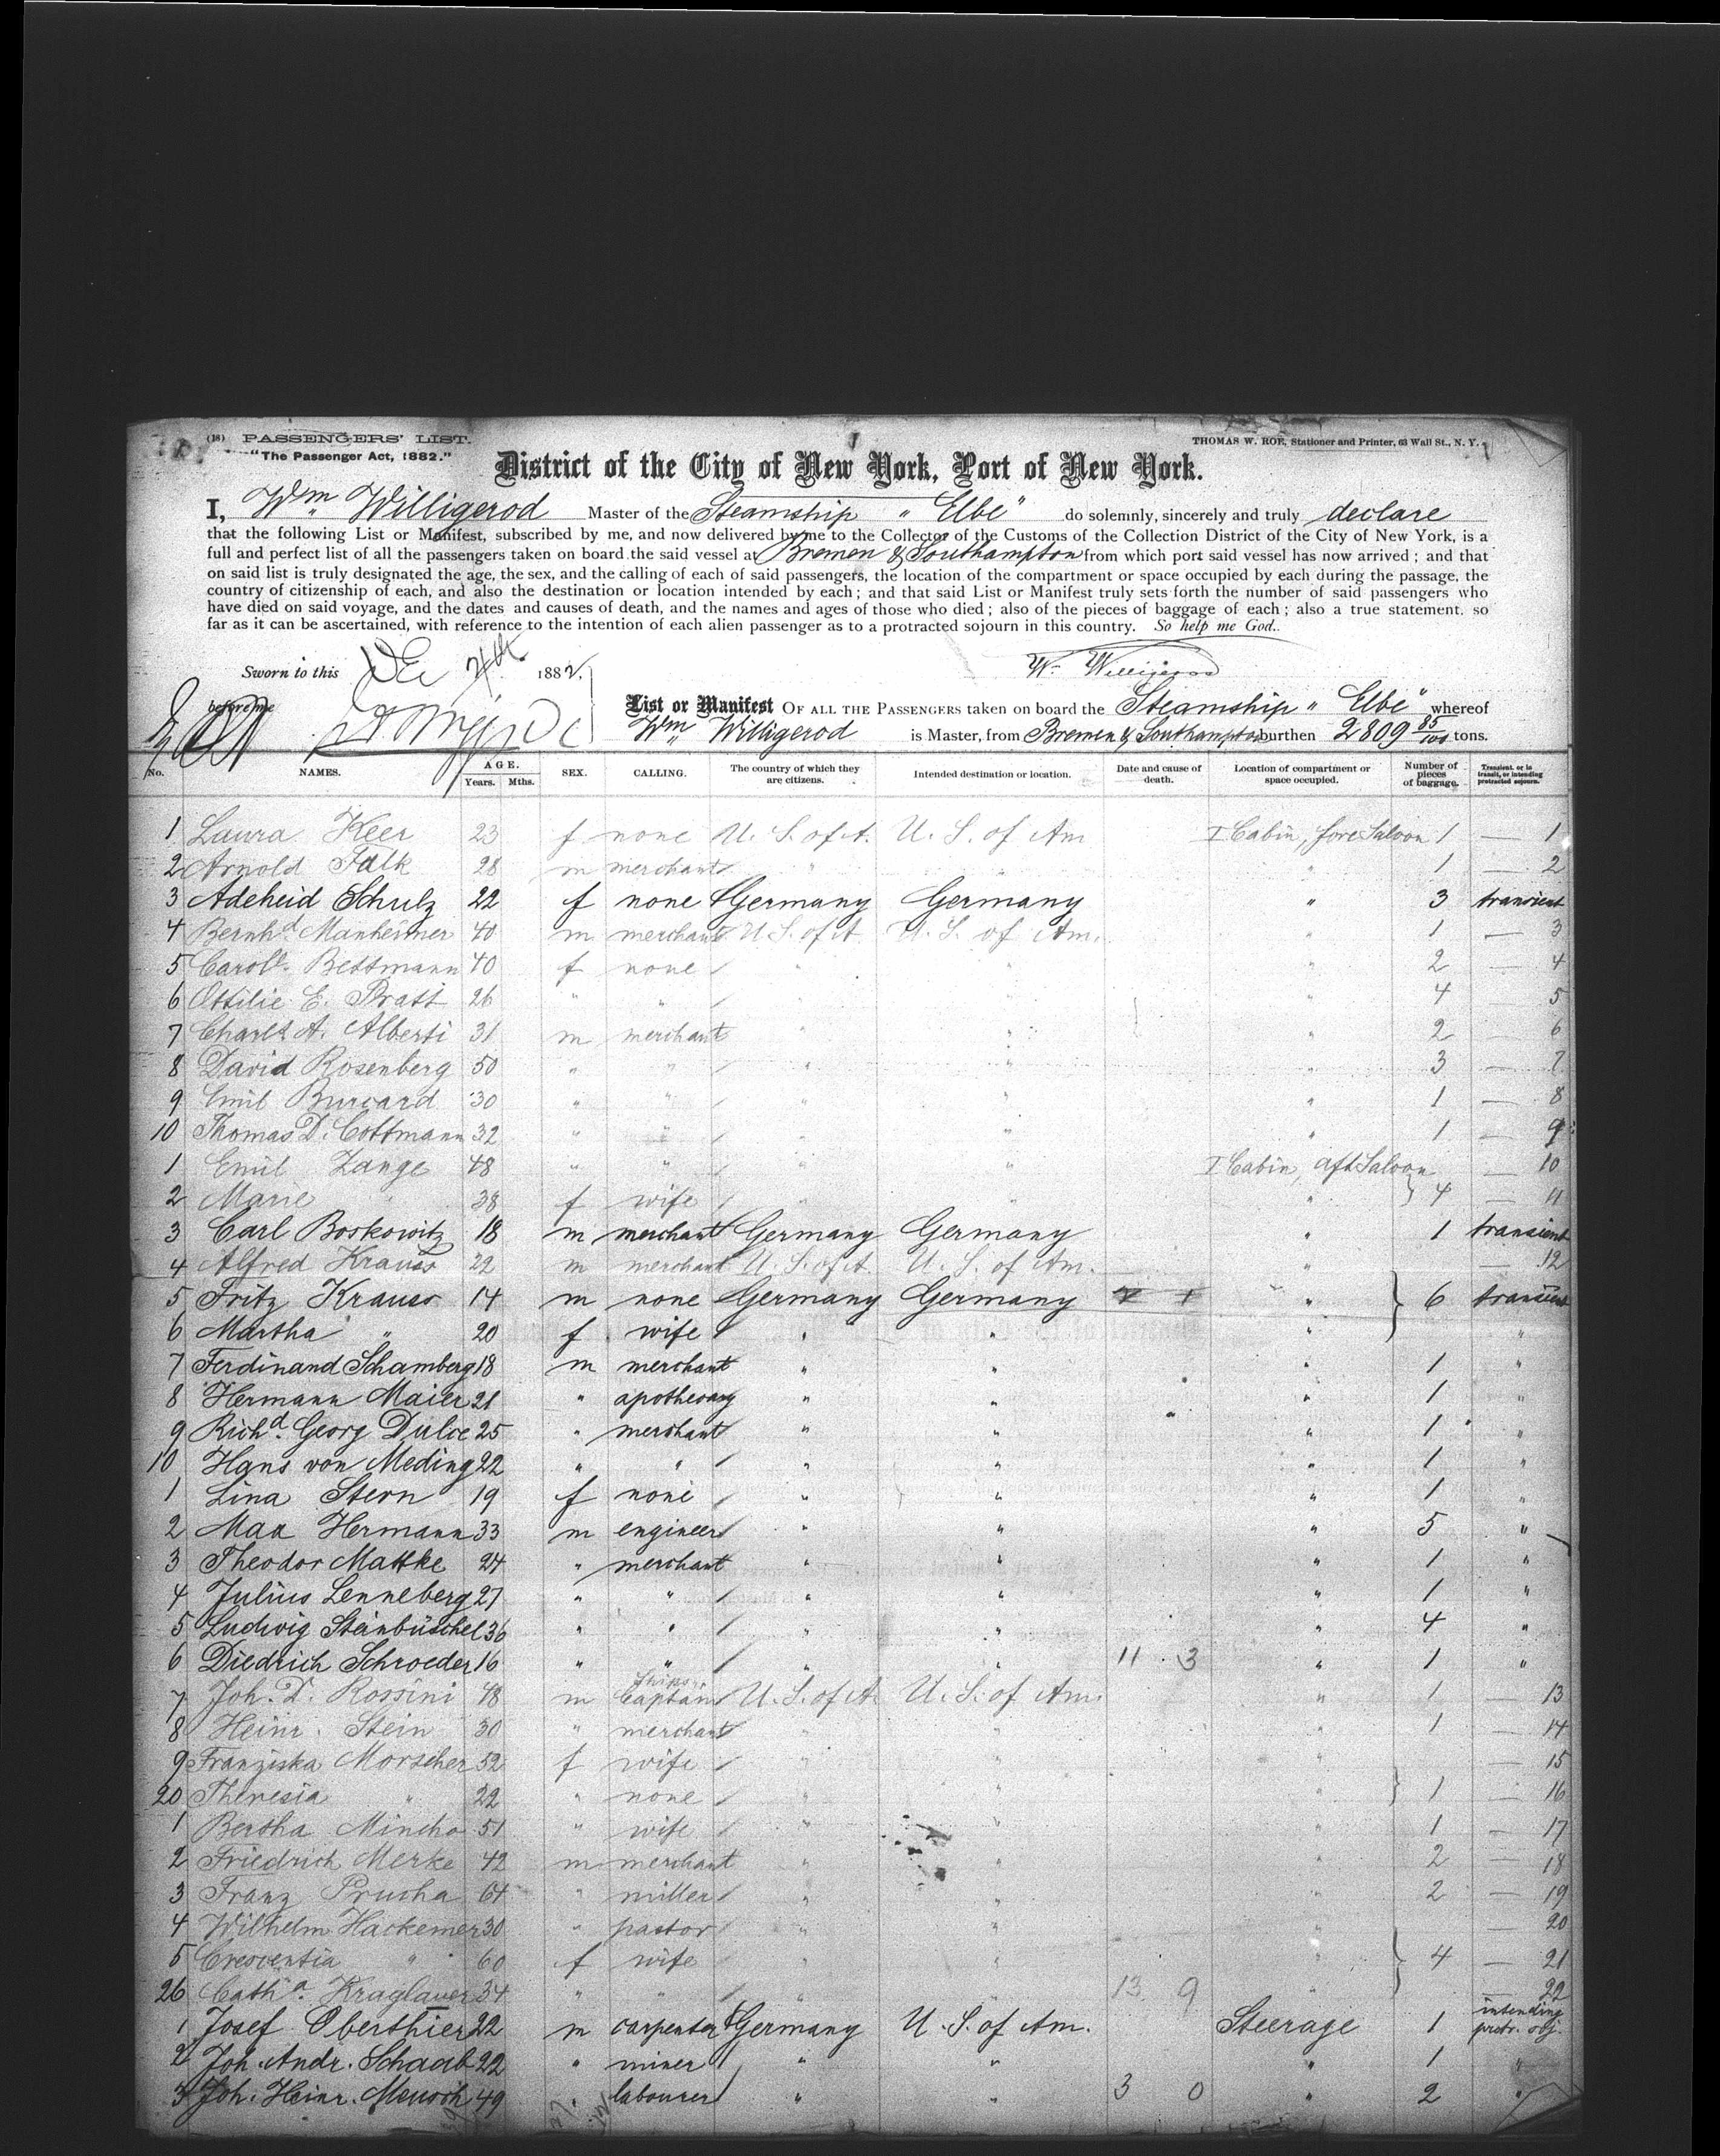 (18) PASSENGERS' LIST.
"The Passenger Act, 1882."
THOMAS W. ROE, Stationer and Printer, 63 Wall St., N. Y.
District of the City of New York, Port of New York.
I, Wm Willigerod Master of the Steamship "Elbe" do solemnly, sincerely and truly declare
that the following List or Manifest, subscribed by me, and now delivered by me to the Collector of the Customs of the Collection District of the City of New York, is a
full and perfect list of all the passengers taken on board the said vessel at Bremen & Southampton from which port said vessel has now arrived; and that
on said list is truly designated the age, the sex, and the calling of each of said passengers, the location of the compartment or space occupied by each during the passage, the
country of citizenship of each, and also the destination or location intended by each; and that said List or Manifest truly sets forth the number of said passengers who
have died on said voyage, and the dates and causes of death, and the names and ages of those who died; also of the pieces of baggage of each; also a true statement, so
far as it can be ascertained, with reference to the intention of each alien passenger as to a protracted sojourn in this country. So help me God.
Sworn to this 1882.
W. Willigerod
before me
List or Manifest OF ALL THE PASSENGERS taken on board the Steamship "Elbe" whereof
Wm Willigerod is Master, from Bremen & Southampton burthen 2809 85/100 tons.
No. NAMES. AGE. Years. Mths. SEX. CALLING. The country of which they are citizens. Intended destination or location. Date and cause of death. Location of compartment or space occupied. Number of pieces of baggage. Transient, or in transit, or intending protracted sojourn.
1 Laura Keer 23 f none U. S. of A. U. S. of Am I Cabin, fore Saloon 1 — 1
2 Arnold Falk 28 m merchant " " " 1 — 2
3 Adeheid Schulz 22 f none Germany Germany " 3 transient
4 Bernhd. Manheimer 40 m merchant U. S. of A. U. S. of Am. " 1 — 3
5 Carole. Bettmann 40 f none " " " 2 — 4
6 Ottilie E. Pratt 26 " " " " " 4 — 5
7 Charls A. Alberti 31 m merchant " " " 2 — 6
8 David Rosenberg 50 " " " " " 3 — 7
9 Emil Burcard 30 " " " " " 1 — 8
10 Thomas D. Cottmann 32 " " " " " 1 — 9
1 Emil Zange 48 " " " " I Cabin, aft Saloon — 10
2 Marie " 38 f wife " " " 4 — 11
3 Carl Boskowitz 18 m merchant Germany Germany " 1 transient
4 Alfred Krauss 22 m merchant U. S. of A. U. S. of Am. " — 12
5 Fritz Krauss 14 m none Germany Germany " 6 transient
6 Martha " 20 f wife " " " "
7 Ferdinand Schamberg 18 m merchant " " " 1 "
8 Hermann Maier 21 " apothecary " " " 1 "
9 Richd. Georg Dulce 25 " merchant " " " 1 "
10 Hans von Meding 22 " " " " " 1 "
1 Lina Stern 19 f none " " " 1 "
2 Max Hermann 33 m engineer " " " 5 "
3 Theodor Mattke 24 " merchant " " " 1 "
4 Julius Lenneberg 27 " " " " " 1 "
5 Ludwig Steinbüschel 36 " " " " " 4 "
6 Diedrich Schroeder 16 " " " " 11 3 " 1 "
7 Joh. D. Rossini 48 m Ships Captain U. S. of A. U. S. of Am. " 1 — 13
8 Heinr. Stein 30 " merchant " " " 1 — 14
9 Franziska Morscher 52 f wife " " " 15
20 Theresia " 22 " none " " " 1 — 16
1 Bertha Mincho 51 " wife " " " 1 — 17
2 Friedrich Merke 42 m merchant " " " 2 — 18
3 Franz Prucha 64 " miller " " " 2 — 19
4 Wilhelm Hackemer 30 " pastor " " " — 20
5 Crescentia " 60 f wife " " " 4 — 21
26 Catha. Kraglauer 34 " " " " 13 9 — 22
1 Josef Oberthier 22 m carpenter Germany U. S. of Am. Steerage 1 intending protr. soj.
2 Joh. Andr. Schaab 22 " miner " " " 1 "
3 Joh. Heinr. Mensch 49 " labourer " " 3 0 " 2 "